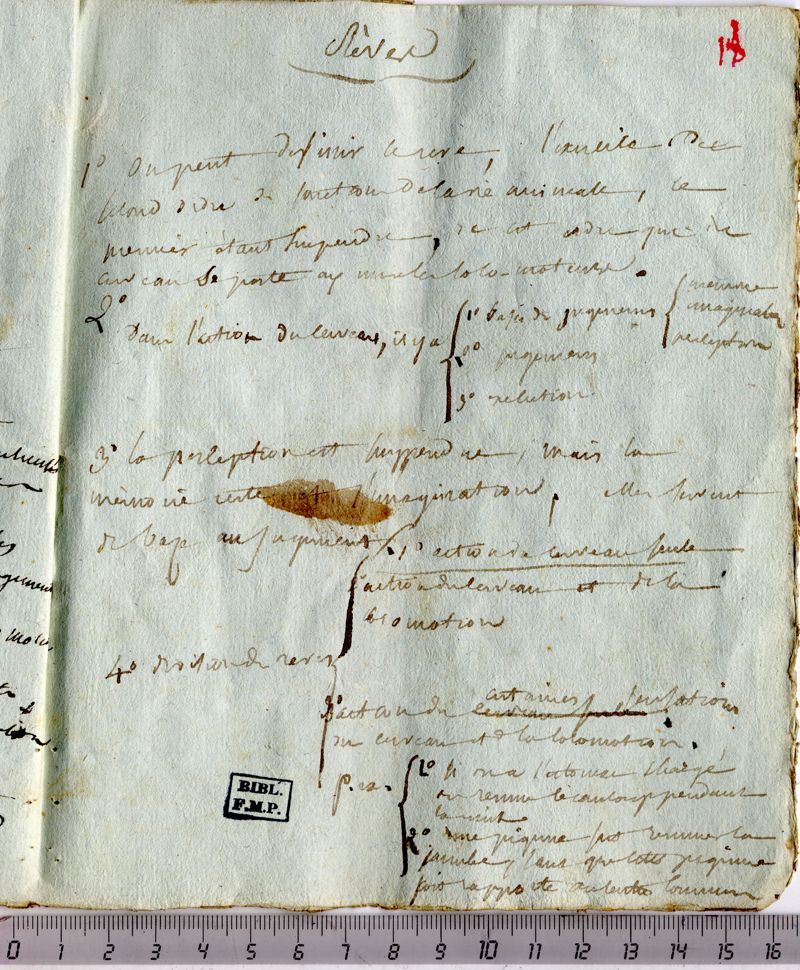 Rêves
1º On peut definir le rêve, l'exercice de
second ordre de fonctions de la vie animale, le
premier étant suspendu, de cet ordre que le
cerveau se porte aux muscles loco-moteurs.
2º
Dans l'action du cerveau, il y a
1º base de jugemens
memoire
imagination
perception
2º jugemens
3º volition
3º la perception est suspendue, mais la
mémoire reste et l'imagination, elles servent
de base au jugement
1º action de cerveau seule
action du cerveau et de la
locomotion
4º division de reves
3º action de certaines sensations
du cerveau et de la locomotion.
p. ex.
1º si on a l'estomac chargé
on remue beaucoup pendant
la nuit.
2º une piqure fait remuer la
jambe sans que cette piqure
soit rapporté au centre commun
BIBL.
F.M.P.
0 1 2 3 4 5 6 7 8 9 10 11 12 13 14 15 16